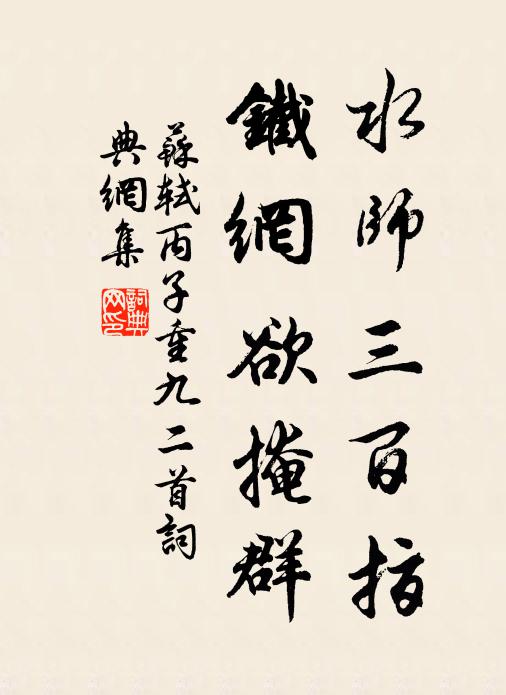 水師三百指
鐵網欲掩群
蘇軾丙子重九二首詞
典網集
詞典網印